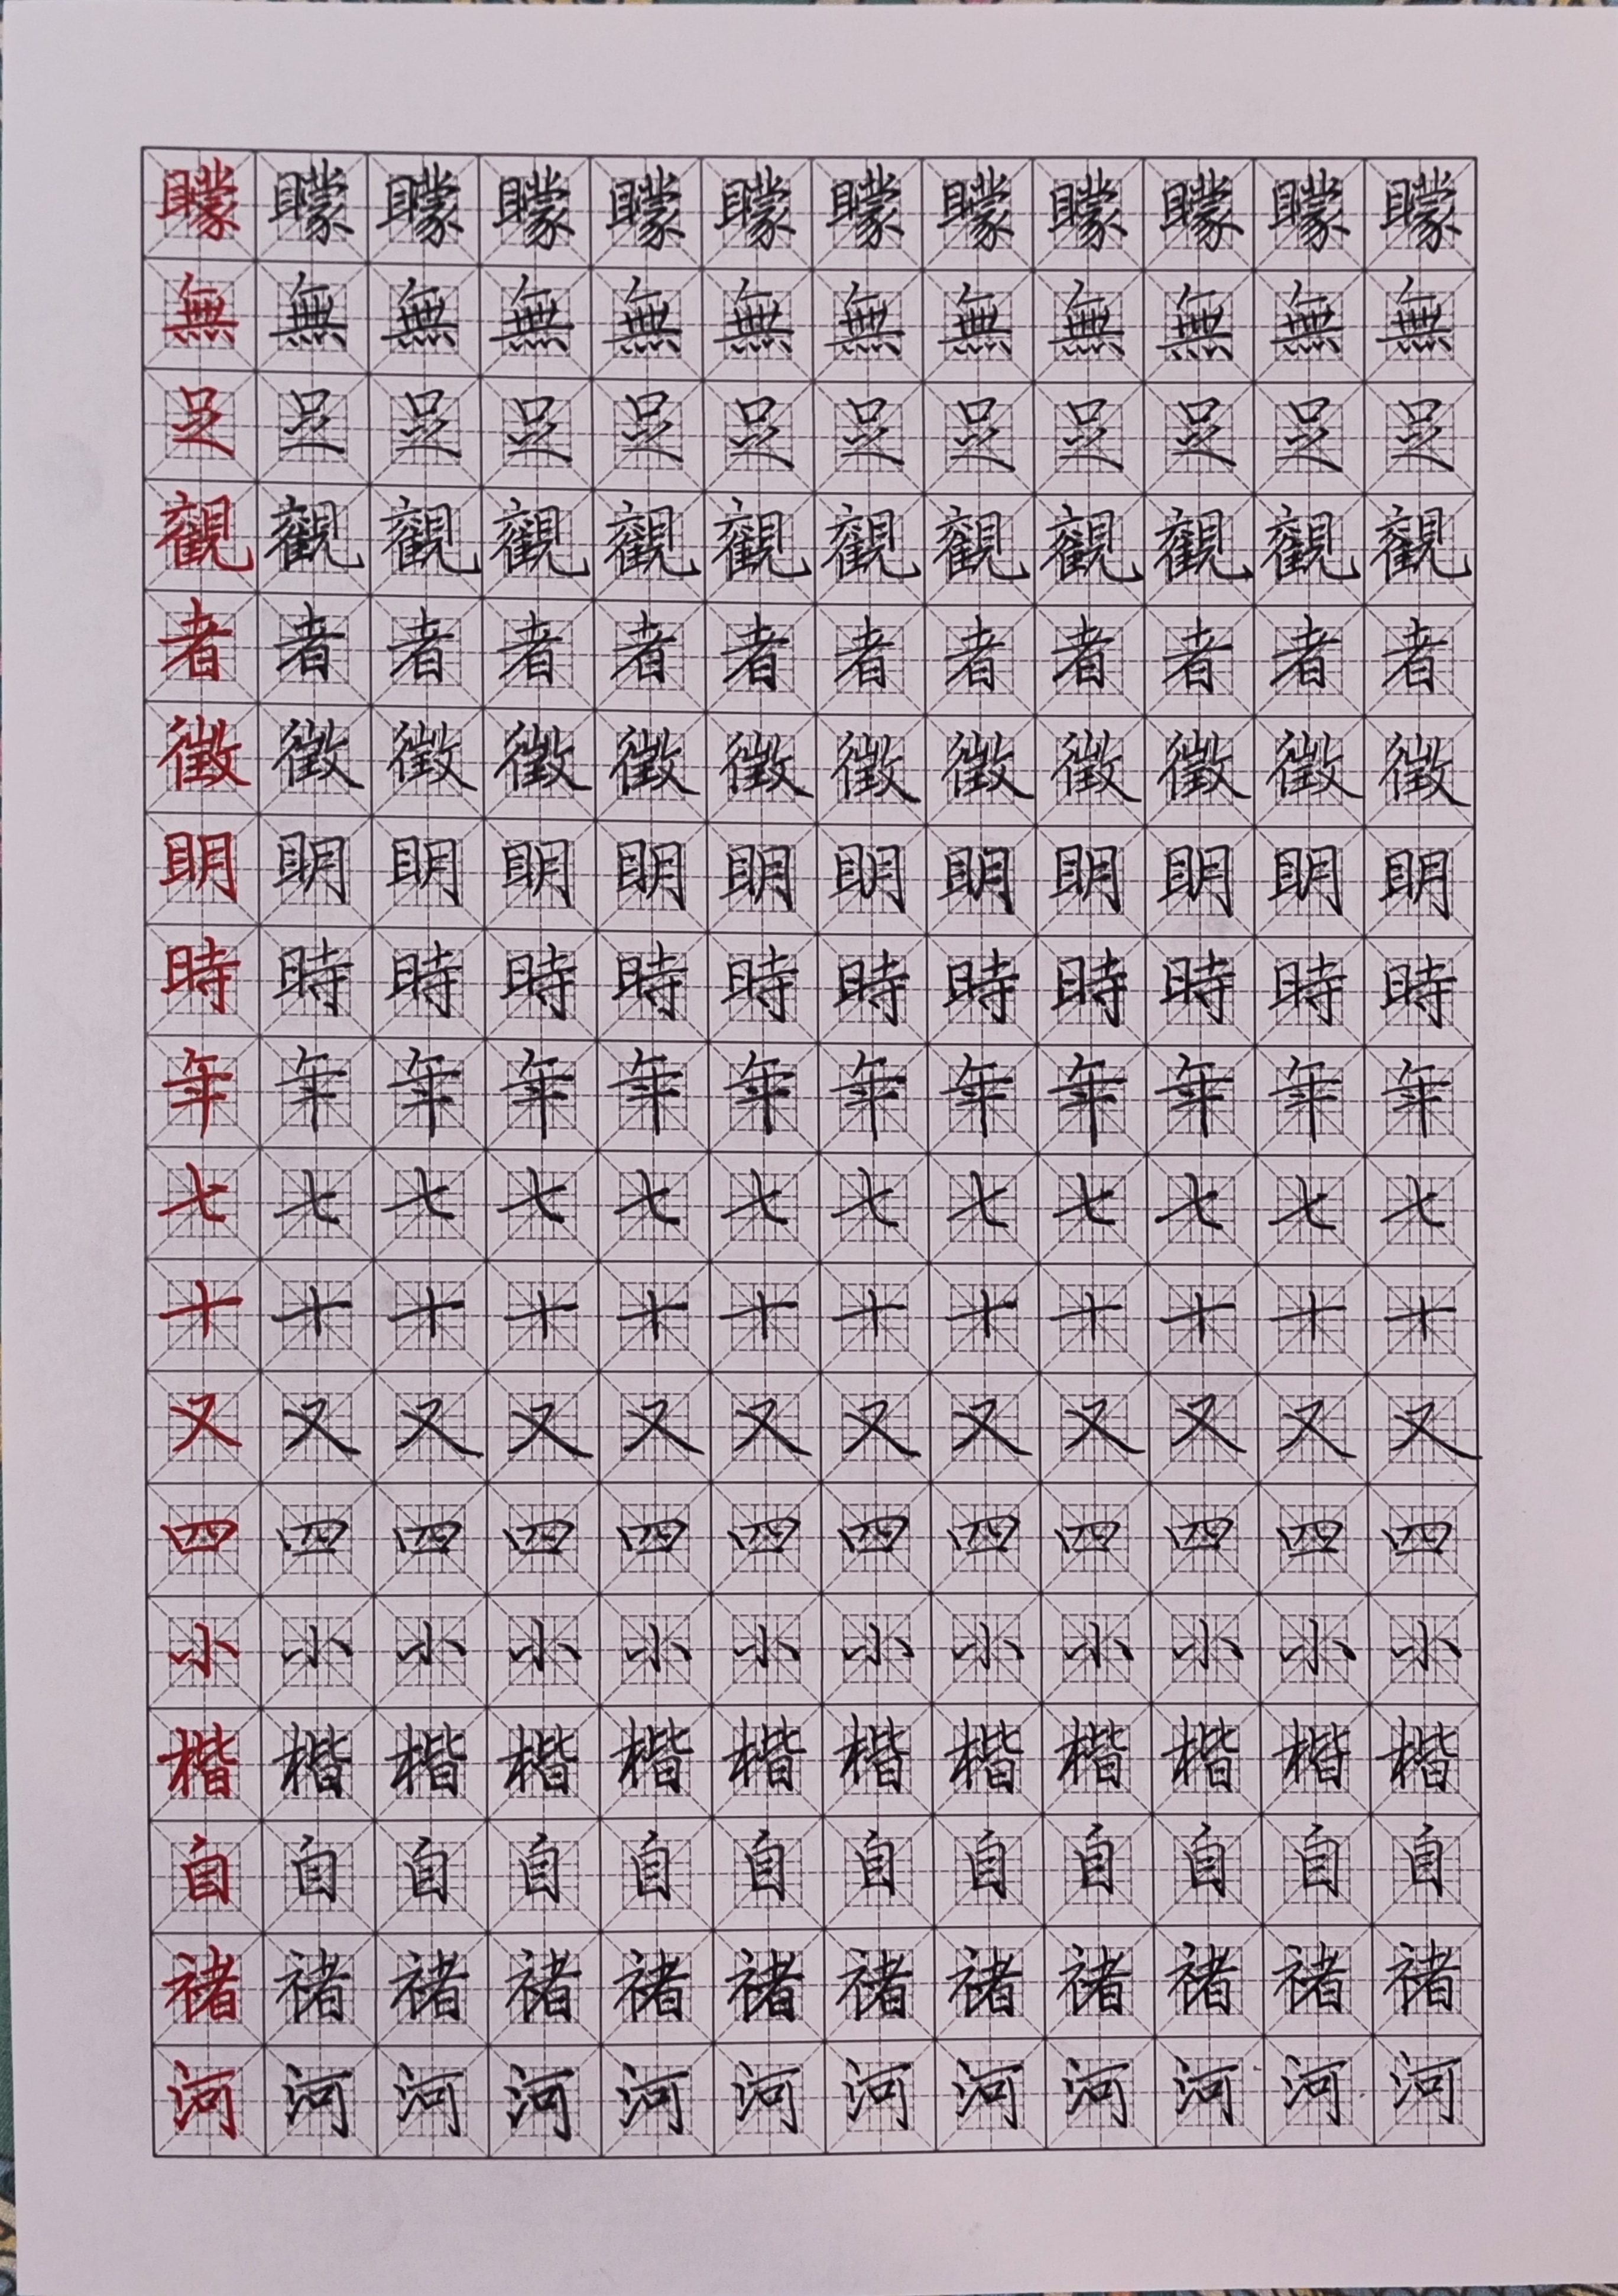 矇矇矇矇矇矇矇矇矇矇矇矇
無無無無無無無無無無無無
足足足足足足足足足足足足
觀觀觀觀觀觀觀觀觀觀觀觀
者者者者者者者者者者者者
徵徵徵徵徵徵徵徵徵徵徵徵
眀眀眀眀眀眀眀眀眀眀眀眀
時時時時時時時時時時時時
年年年年年年年年年年年年
七七七七七七七七七七七七
十十十十十十十十十十十十
又又又又又又又又又又又又
四四四四四四四四四四四四
小小小小小小小小小小小小
楷楷楷楷楷楷楷楷楷楷楷楷
自自自自自自自自自自自自
褚褚褚褚褚褚褚褚褚褚褚褚
河河河河河河河河河河河河